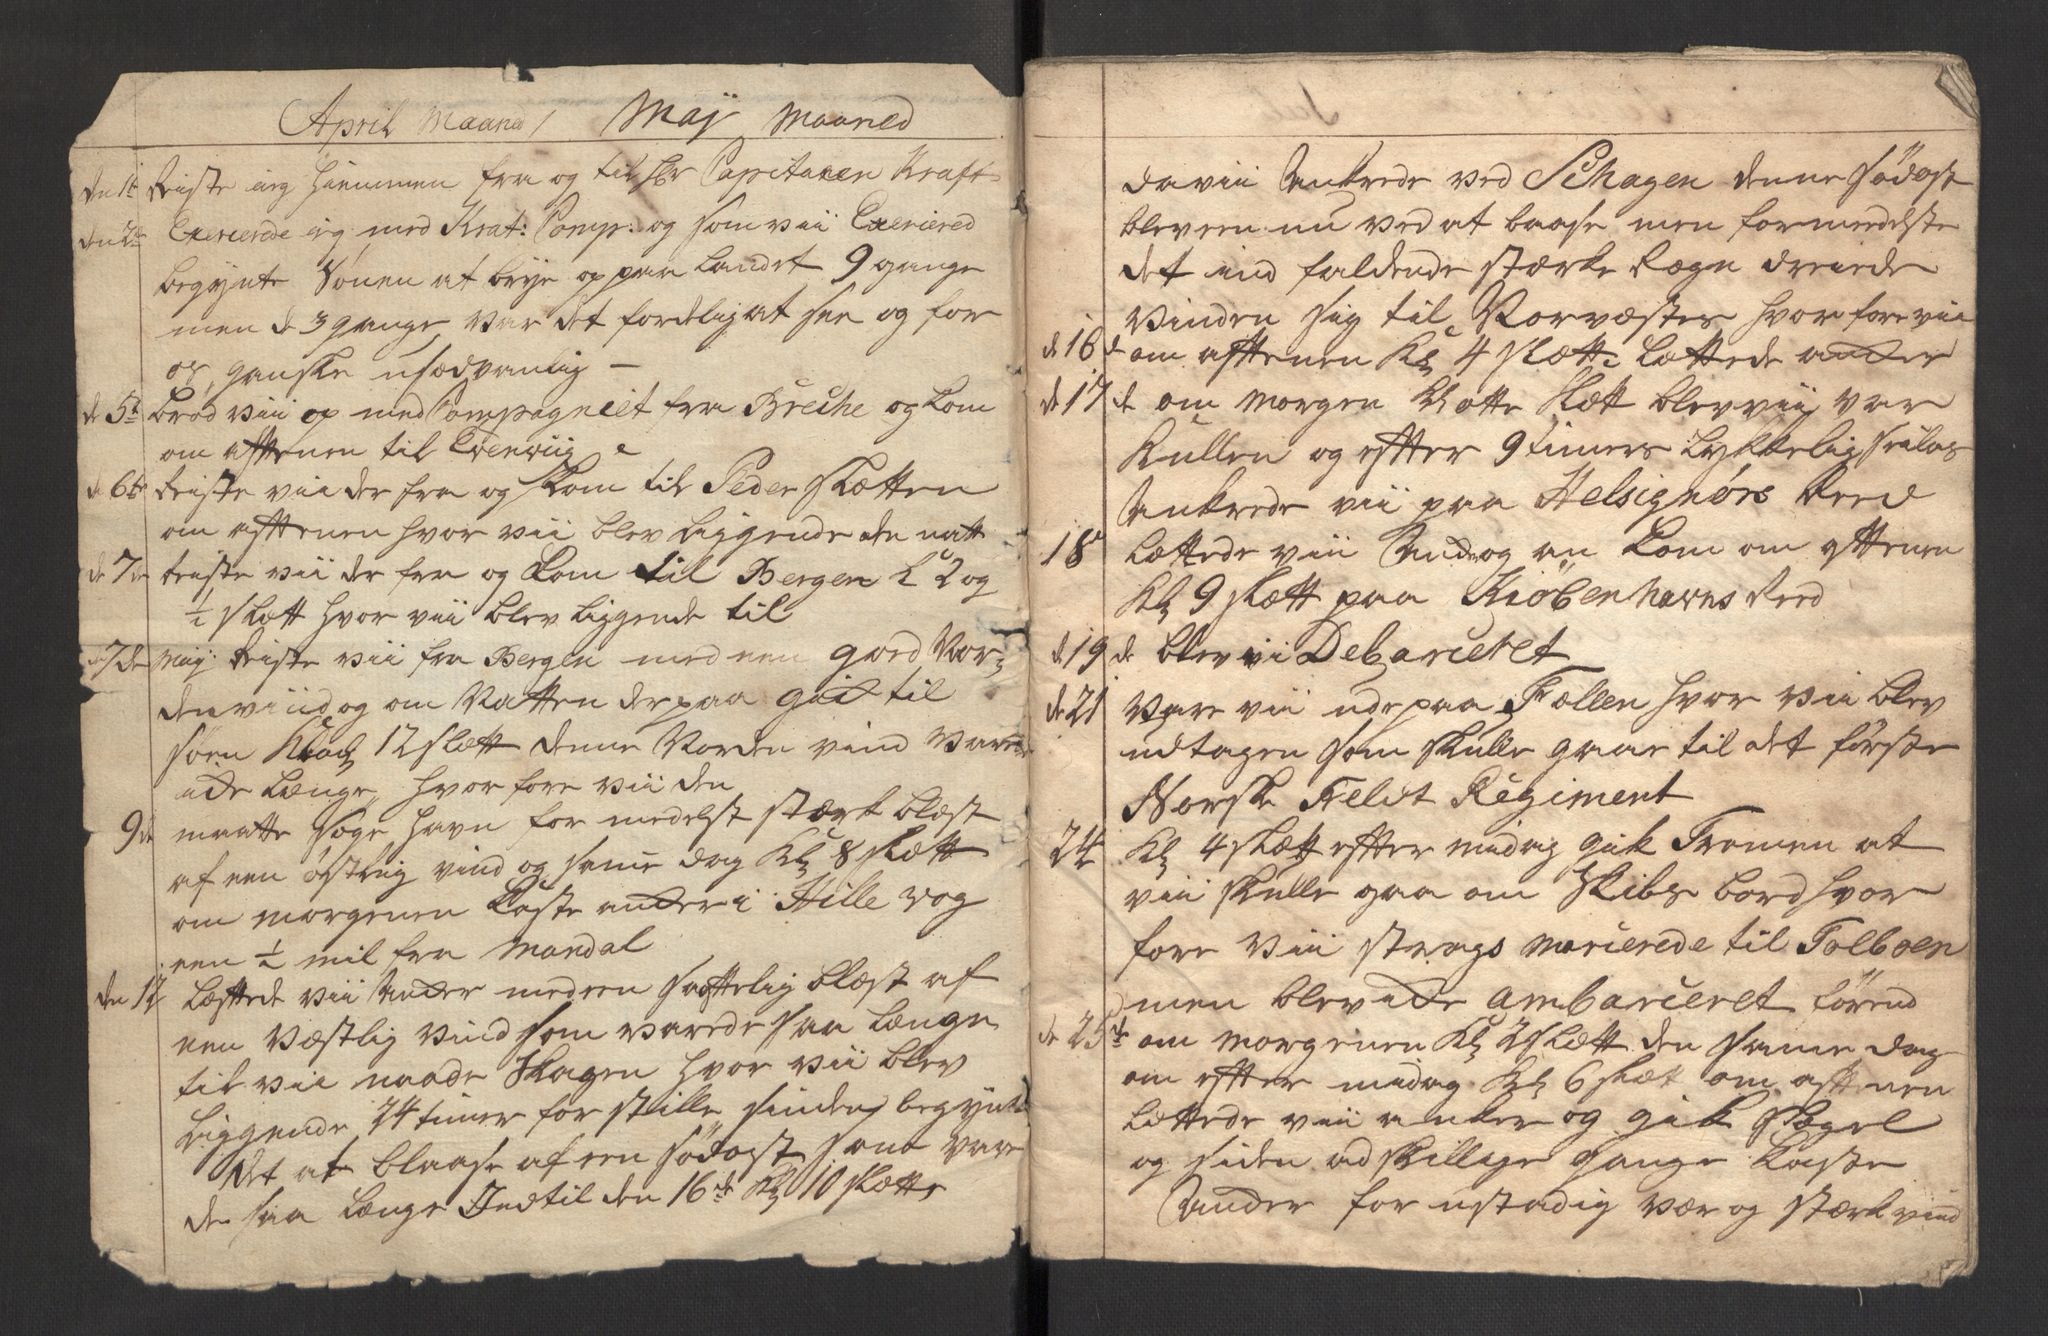 April Maaned / Maÿ Maaned
den 1te Reiste ieg hiemmen fra og til hr Capitanen Kraft
den 2den Exercerede ieg med Kraf: Comp: og som vii Exercered
begynte Sonen at brye op paa Landet 9 gange
men de 3 gange var det fordelig at see og for
os, ganske usædvanlig —
de 5te brød vii op med Compagniet fra Breche og kom
om afftenen til Evenviig
de 6te Reiste vii der fra og kom til Peder Sletten
om afftenen hvor vii blev liggende de natt
de 7de reiste vii der fra og kom til Bergen k 2 og
½ slætt hvor vii blev liggende til
de 7de Maÿ: Reiste vii fra Bergen med een goed Nor-
den viind og om Natten der paa gik til
søen Klock 12 slætt denne Norden vind varede
icke længe, hvor fore vii den
9de maatte søge havn for medelst stærk blæst
af een østlig vind og same dag Kl 8 slætt
om morgenen kaste ancker i Hille vog
een ½ mil fra Mandal
den 12 lættede vii Ancker med een sagttelig blæst af
een væstlig vind som varede saa længe
til vii naade Skagen hvor vii blev
liggende 24 timer for stille, siden begynte
det at blaase af een södost som vare
de saa længe Indtil den 16de Kl 10 slætt
da vii Anckrede ved Schagen denne södost
bleveen nu ved at baase men formedelste
det ind faldende stærke Rægn dreiede
vinden sig til Norvæsten hvor fore vii
de 16de om afftenen Kl 4 slætt lættede ancker
de 17de om morgen Kl otte slætt blev vii var
Kullen og efter 9 timers lykkelig seilas
Anckrede vii paa Helsignörs Reed
18de lættede vii Ancker og an kom om afftenen
Kl 9 slætt paa Kiöbenhavns Reed
de 19de blev vi Debarceret
de 21 Vare vii ude paa Fælleen hvor vii blev
udtagen som skulle gaae til det förste
Norske Feldt Regiment
24 Kl 4 slætt effter midag gik Tromen at
vii skulle gaa om Skibs bord hvor
fore vii strags marcerede til Tolboen
men blev icke ambarceret förend
de 25te om morgenen Kl 2 slætt den same dag
om effter midag Kl 6 slæt om afftenen
lættede vii ancker og gik Segel
og siden adskillige gange kaste
Ancker for ustadig vær og stærk vind